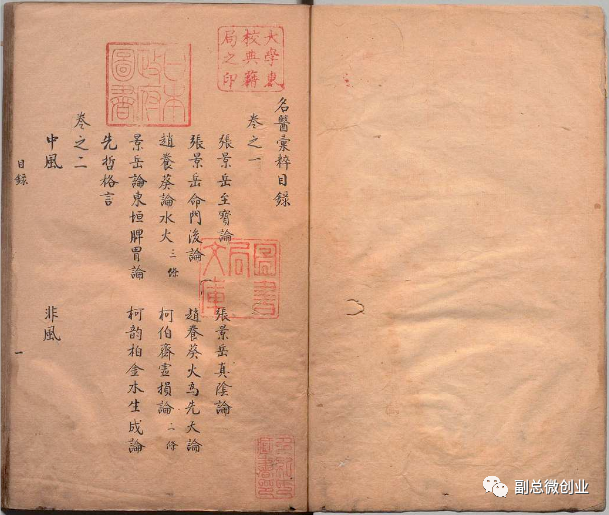 名醫彙粹目錄
卷之一
張景岳至寶論 張景岳真陰論
張景岳命門後論 趙養葵火為先天論
趙養葵論水火 三條 柯伯齋虛損論 二條
景岳論東垣脾胃論 柯韵柏金水生成論
先哲格言
卷之二
中風 非風
目錄
一
大學東
校典籍
局之印
日本
政府
圖書
圖書
局
文庫
副总微创业